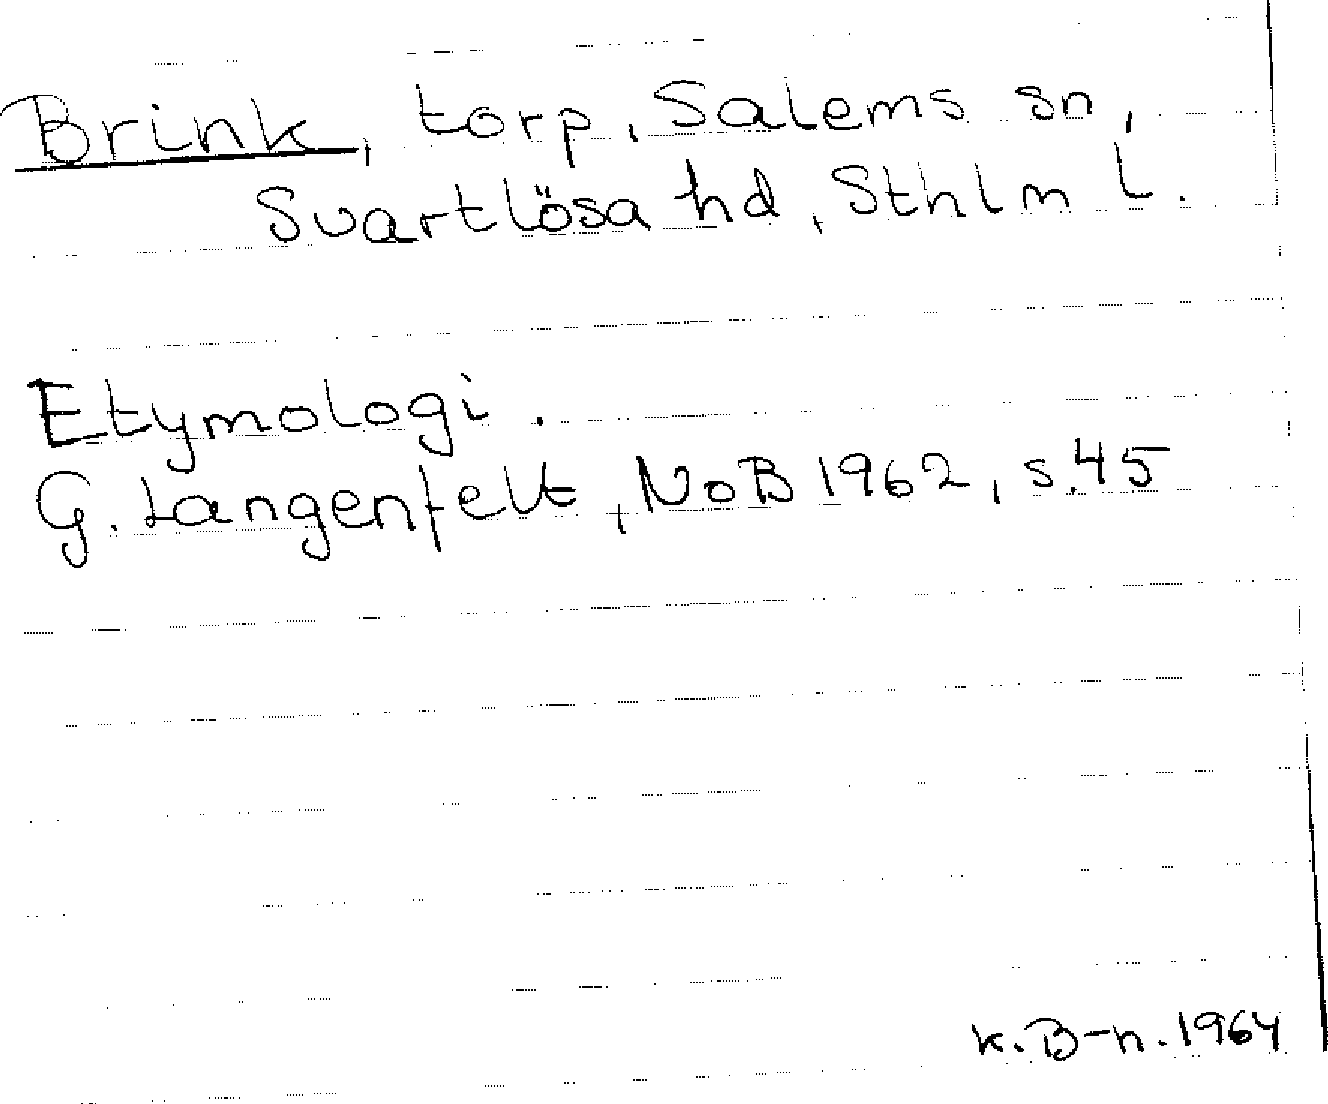 Brink, torp, Salems sn,
Svartlösa hd, Sthlm l.
Etymologi.
G. Langenfelt, NoB 1962, s.45
K. B-n. 1964